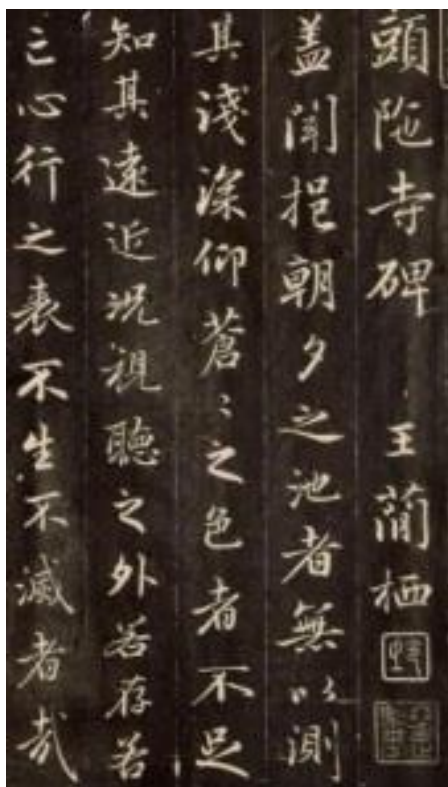 頭陁寺碑 王蕳栖
盖聞挹朝夕之池者無以測
其淺深仰蒼〻之色者不足
知其遠近況視聽之外若存若
亡心行之表不生不滅者哉